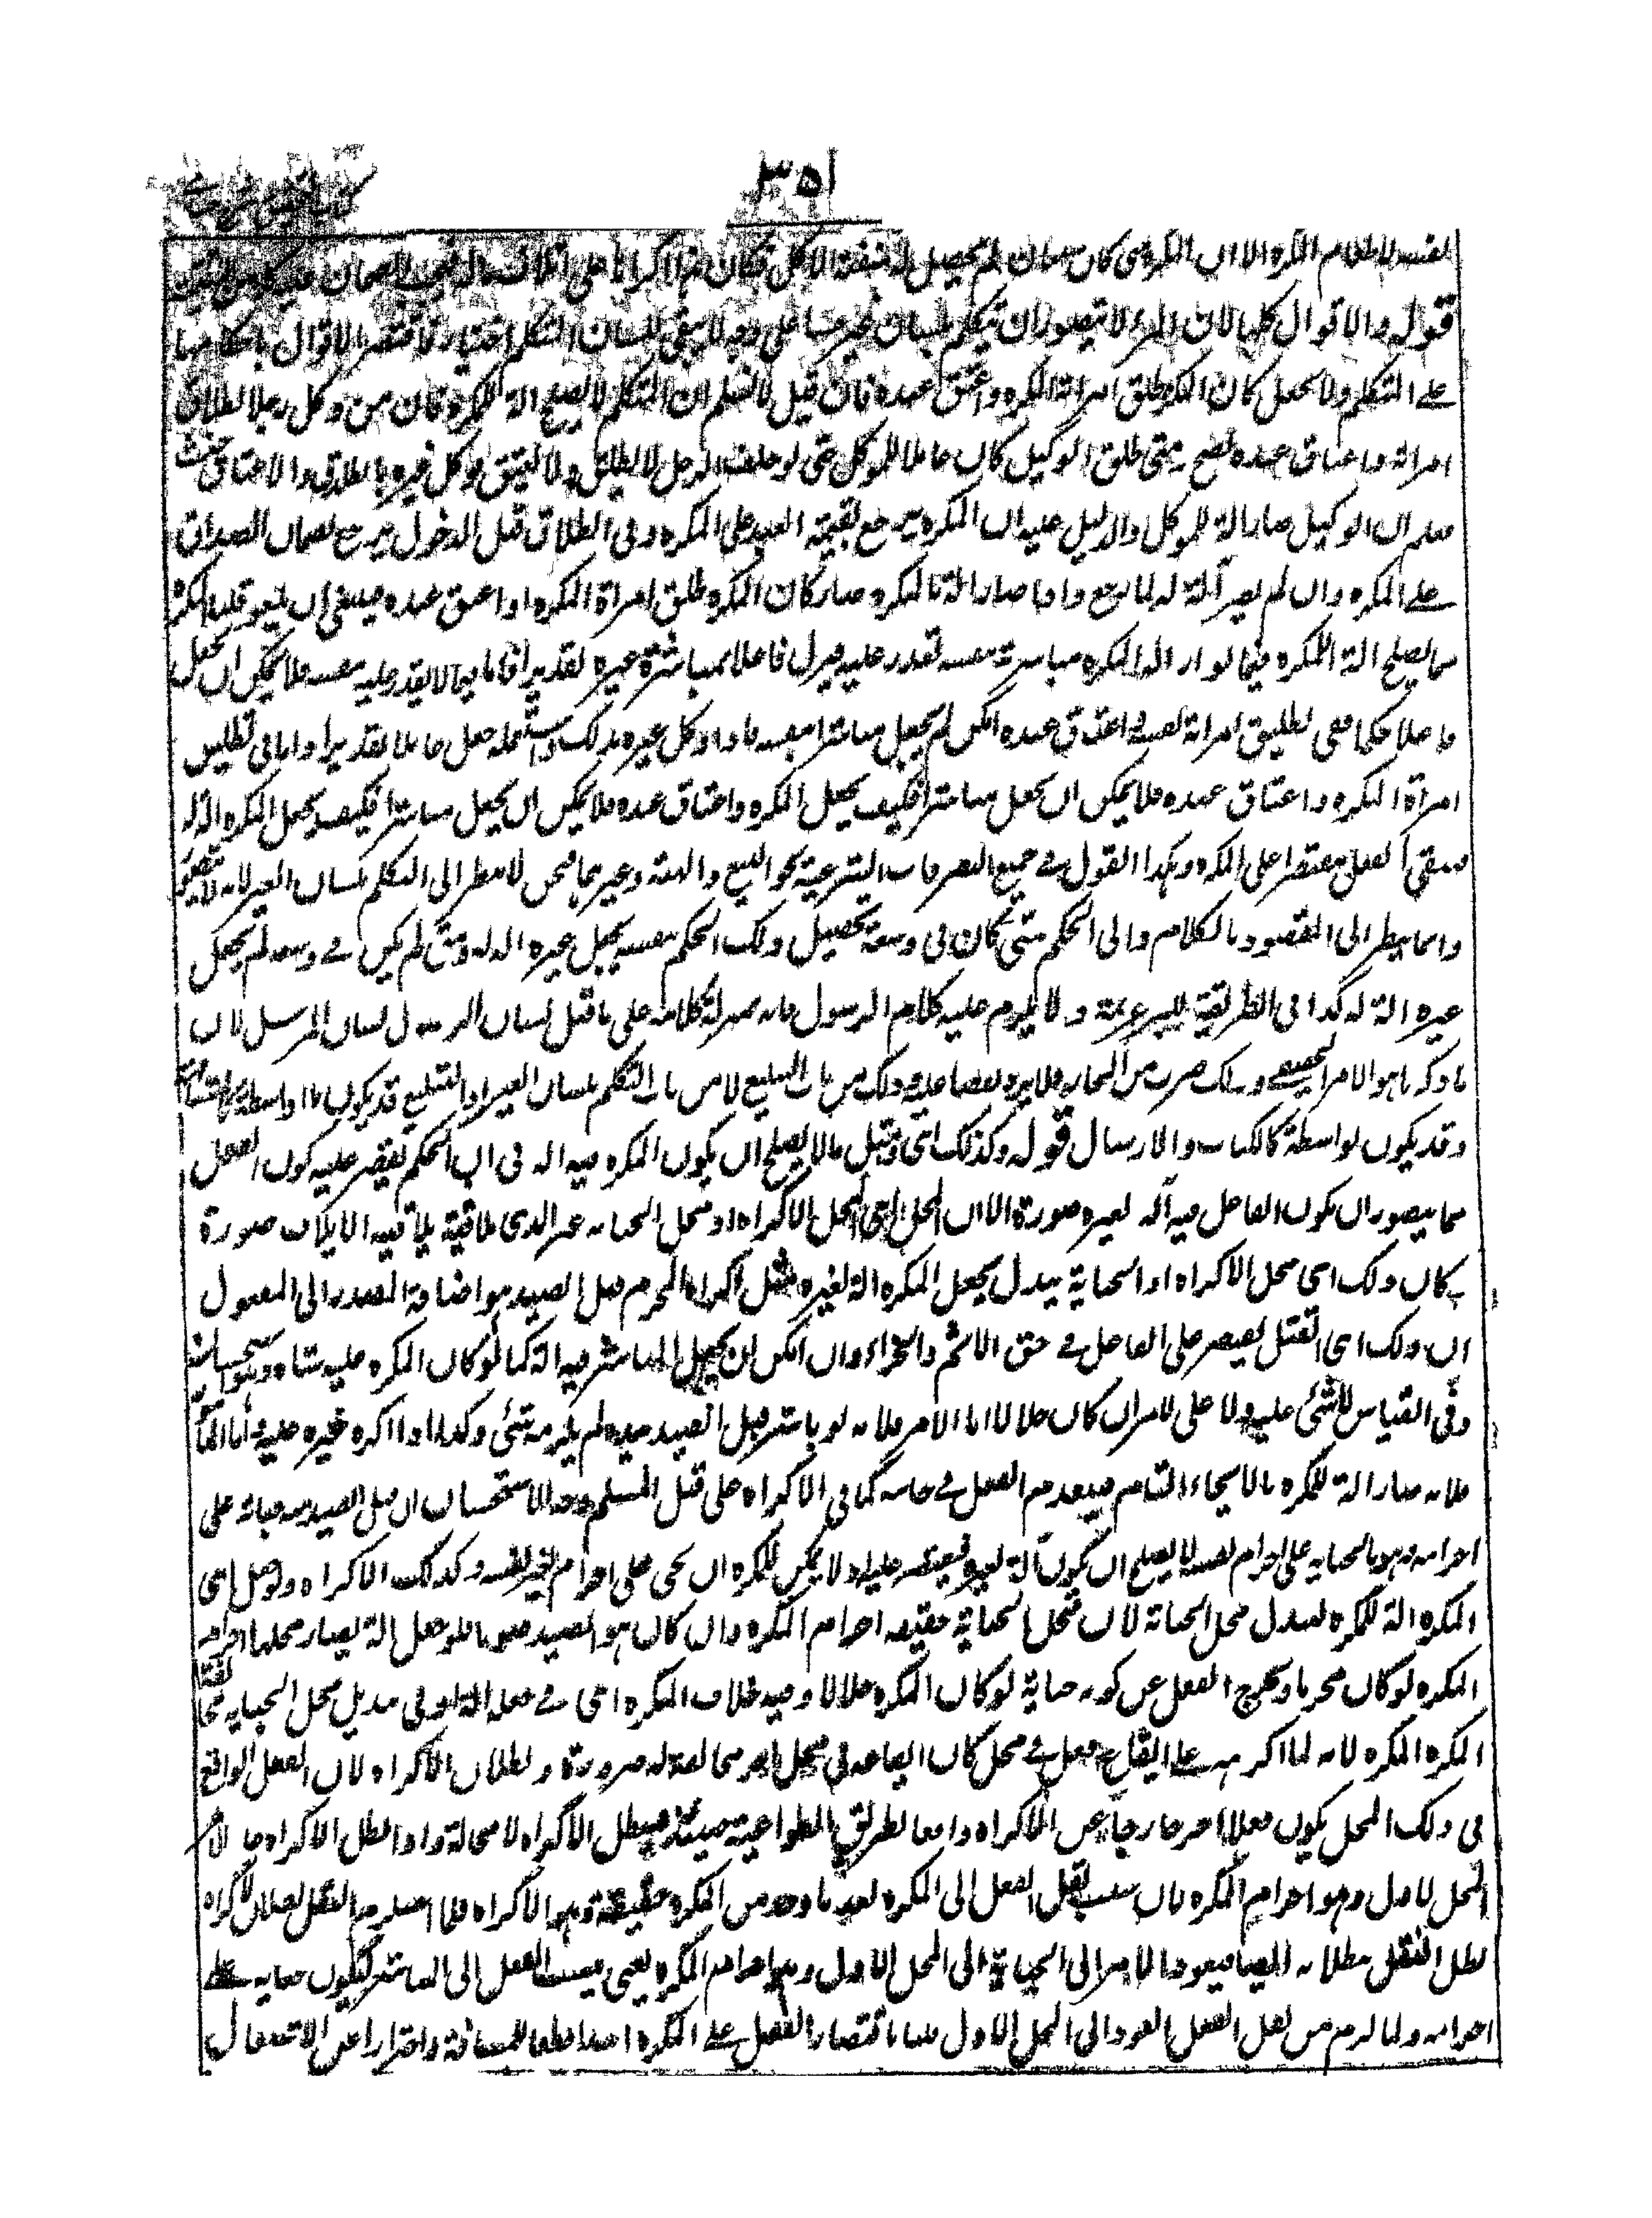 ٣٥١
لنفسه لا طعام المكره الا ان المكره متى كان لم تحصل له منفعة الاكل فكان هذا اكراها على اتلاف ماله فيجب الضمان عليه
قوله والاقوال كلها لان المرء لا يتصور ان يتكلم بلسان غيره على وجه لا يبقى للسان المتكلم اختيار فاقتصر الاقوال باحكامها
على المتكلم ولا يجعل كان المكره طلق امرأة المكره واعتق عبده فان قيل لا نسلم ان المتكلم لا يصلح الة للمكره فان من وكل رجلا بطلاق
امرأته واعتاق عبده يصح ومتى طلق الوكيل كان عاملا للموكل حتى لو حلف الرجل لا يطلق ولا يعتق فوكل غيره بالطلاق والاعتاق حنث
فعلم ان الوكيل صار الة للموكل والدليل عليه ان المكره يرجع بقيمة العبد على المكره وفى الطلاق قبل الدخول يرجع بضمان الصداق
على المكره وان لم يصر آلة له لما رجع واذا صار الة فالمكره صار كان المكره طلق امرأة المكره او اعتق عبده فينبغى ان يلغو قلنا المكره
انما يصلح الة للمكره فيما لو اراد المكره مباشرته بنفسه تقدر عليه فيزل فاعلا بمباشرة غيره تقديرا فاما فيما لا يقدر عليه بنفسه فلا يمكن ان يجعل
فاعلا حكما ففى تطليق امرأة نفسه واعتاق عبده امكن ان يجعل مباشرا بنفسه فاذا وكل غيره بذلك واستعمله جعل فاعلا تقديرا واما فى تطليق
امرأة المكره واعتاق عبده فلا يمكن ان يجعل مباشرا فكيف يجعل المكره واعتاق عبده فلا يمكن ان يجعل مباشرا فكيف يجعل المكره الة له
فبقى الفعل مقتصرا على المكره وهكذا القول فى جميع التصرفات الشرعية نحو البيع والهبة وغيرهما فنحن لا ننظر الى التكلم بلسان الغير لانه لا يتصور
وانما ننظر الى المقصود بالكلام والى الحكم فمتى كان فى وسعه تحصيل ذلك الحكم بنفسه يجعل غيره الة له ومتى لم يكن فى وسعه لم يجعل
غيره الة له كذا فى الطريقة البرغرية ولا يلزم عليه كلام الرسول فانه بمنزلة كلامه على ما قيل لسان الرسول لسان المرسل لان
ما ذكرنا هو الامر الحقيقى وذلك ضرب من المجاز فلا يرد نقضا عليه وذلك من باب التبليغ لا من باب التكلم بلسان الغير اذ التبليغ قد يكون بلا واسطة كالمشافهة
وقد يكون بواسطة كالكتاب والارسال قوله وكذلك اى ومثل ما لا يصلح ان يكون المكره فيه الة فى ان الحكم يقتصر عليه كون الفعل
مما يتصور ان يكون الفاعل فيه آلة لغيره صورة الا ان المحل اى محل الاكراه او محل الجناية غير الذى يلاقيه الاتلاف صورة
وكان ذلك اى محل الاكراه او الجناية يتبدل بجعل المكره الة لغيره مثل اكراه المحرم على قتل الصيد هو اضافة المصدر الى المفعول
ان ذلك اى القتل يقتصر على الفاعل فى حق الاثم والجزاء وان امكن ان يجعل المباشر فيه الة كما لو كان المكره عليه شاة وهو استحسان
وفى القياس لا شئ عليه ولا على الامر ان كان حلالا اما الامر فلانه لو باشر قتل الصيد بيده لم يلزمه شئ وكذا اذا اكره غيره عليه واما القاتل
فلانه صار الة للمكره بالالجاء التام فينعدم الفعل فى جانبه كما فى الاكراه على قتل المسلم وجه الاستحسان ان قتل الصيد منه جناية على
احرامه وهو بالجناية على احرام نفسه لا يصلح ان يكون آلة لغيره فيقتصر عليه ولا يمكن للمكره ان يجنى على احرام غير نفسه وكذلك الاكراه ولو جعل اى
المكره الة للمكره لتبدل محل الجناية لان محل الجناية حقيقة احرام المكره وان كان هو الصيد صورة فلو جعل الة يصير محلها احرام
المكره لو كان محرما ويخرج الفعل عن كونه جناية لو كان المكره حلالا وفيه خلاف المكره اى فى جعله الة له وفى تبديل محل الجناية مخالفة
المكره المكره لانه لما اكرهه على ايقاع فعل فى محل كان ايقاعه فى محل اخر مخالفة له ضرورة وبطلان الاكراه لان الفعل الواقع
فى ذلك المحل يكون فعلا اخر خارجا عن الاكراه واقعا بطريق الطواعية فيبطل الاكراه لا محالة واذا بطل الاكراه عاد الامر الى
المحل الاول وهو احرام المكره لان سبب نقل الفعل الى المكره بعد ما وجد من المكره حقيقة هو الاكراه فلما استلزم النقل بطلان الاكراه
بطل النقل بطلانه ايضا فيعود الامر الى الجناية الى المحل الاول وهو احرام المكره يعنى ينتسب الفعل الى المباشر ليكون جناية على
احرامه ولما لزم من نقل الفعل العود الى المحل الاول قلنا باقتصار الفعل على المكره ابتداء قطعا للمسافة واحترازا عن الاشتغال